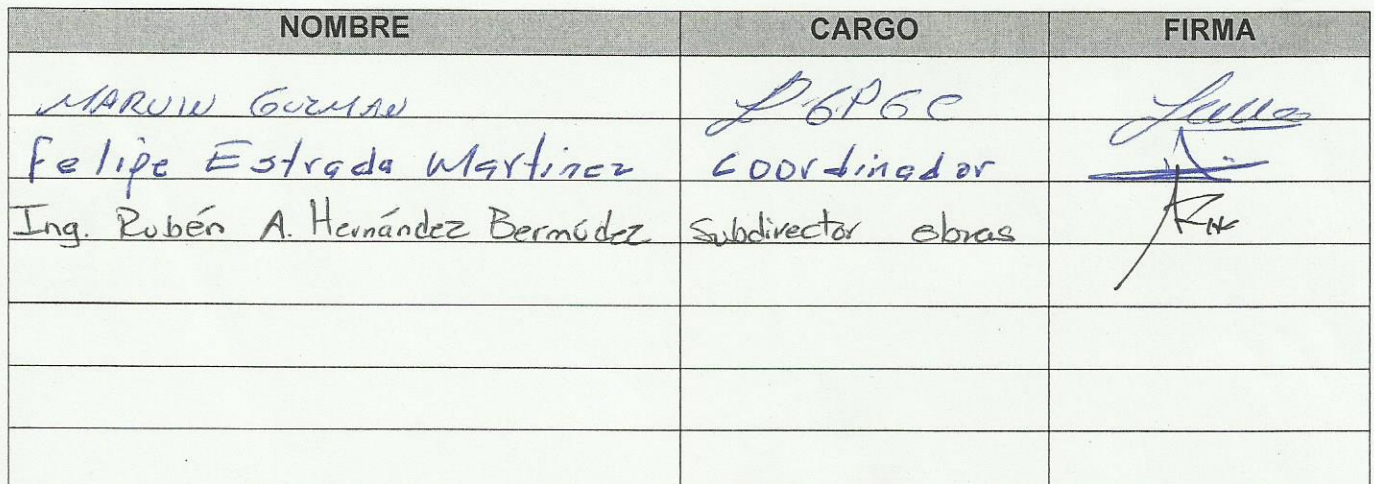 NOMBRE CARGO FIRMA
MARVIN GUZMAN
Felipe Estrada Martinez Coordinador
Ing. Rubén A. Hernández Bermúdez Subdirector obras